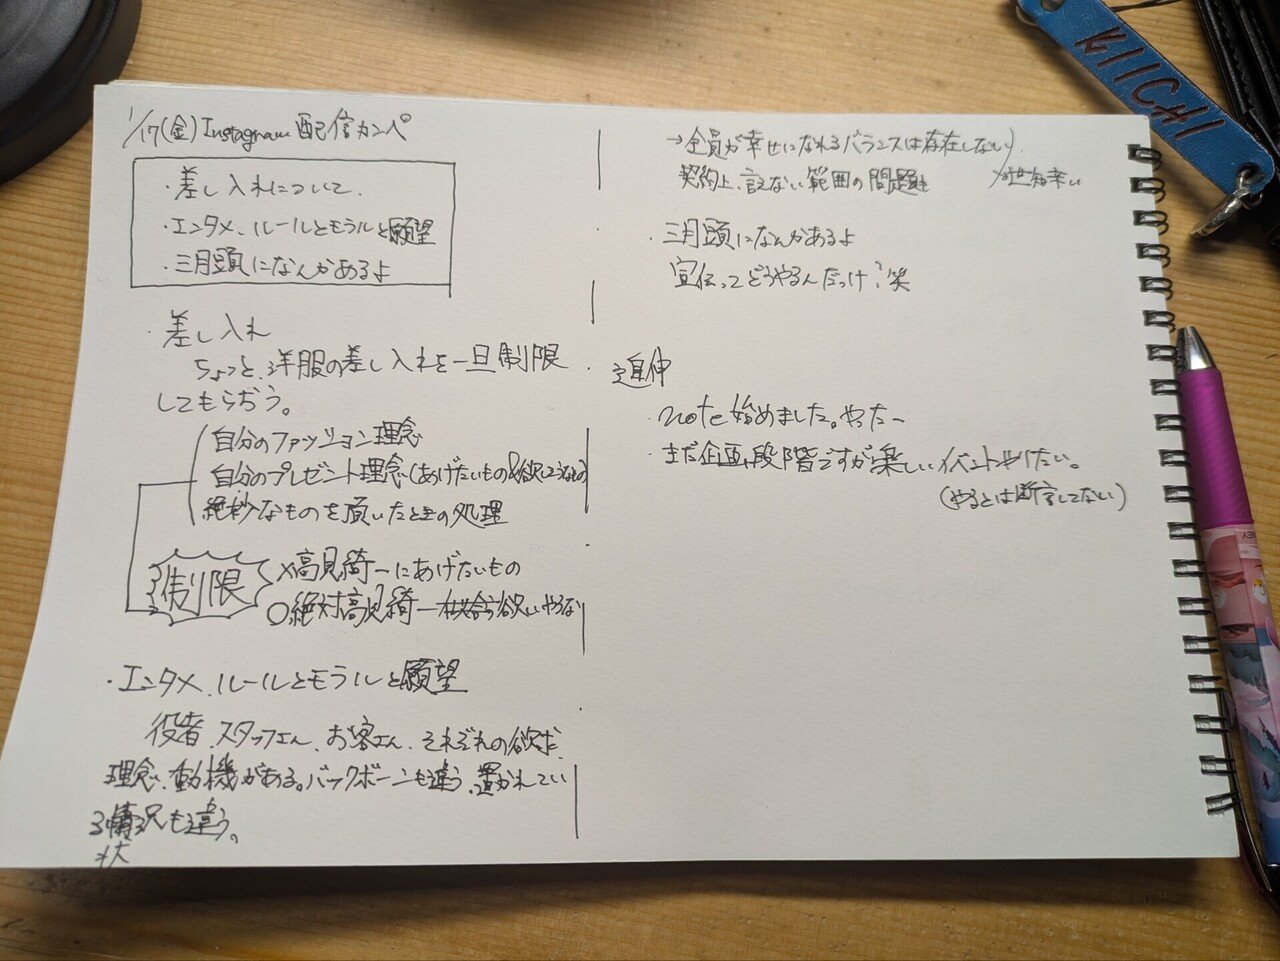 1/17(金)Instagram配信カンペ
・差し入れについて、
・エンタメ、ルールとモラルと願望
・三月頭になんかあるよ
・差し入れ
ちょっと、洋服の差し入れを一旦制限
してもらおう。
自分のファッション理念
自分のプレゼント理念(あげたいもの&欲しそうなもの)
絶妙なものを頂いたときの処理
制限
×高見綺一にあげたいもの
○絶対高見綺一 欲しいやつな
・エンタメ、ルールとモラルと願望
役者、スタッフさん、お客さん、それぞれの欲求
理念、動機がある。バックボーンも違う、置かれてい
る情況も違う。
状
→全員が幸せになれるバランスは存在しない
契約上、言えない範囲の問題も
・三月頭になんかあるよ
宣伝ってどうやるんだっけ?笑
追伸
・note始めました。やったー
・まだ企画段階ですが楽しいイベントやりたい。
(やるとは断言してない)
KIICHI